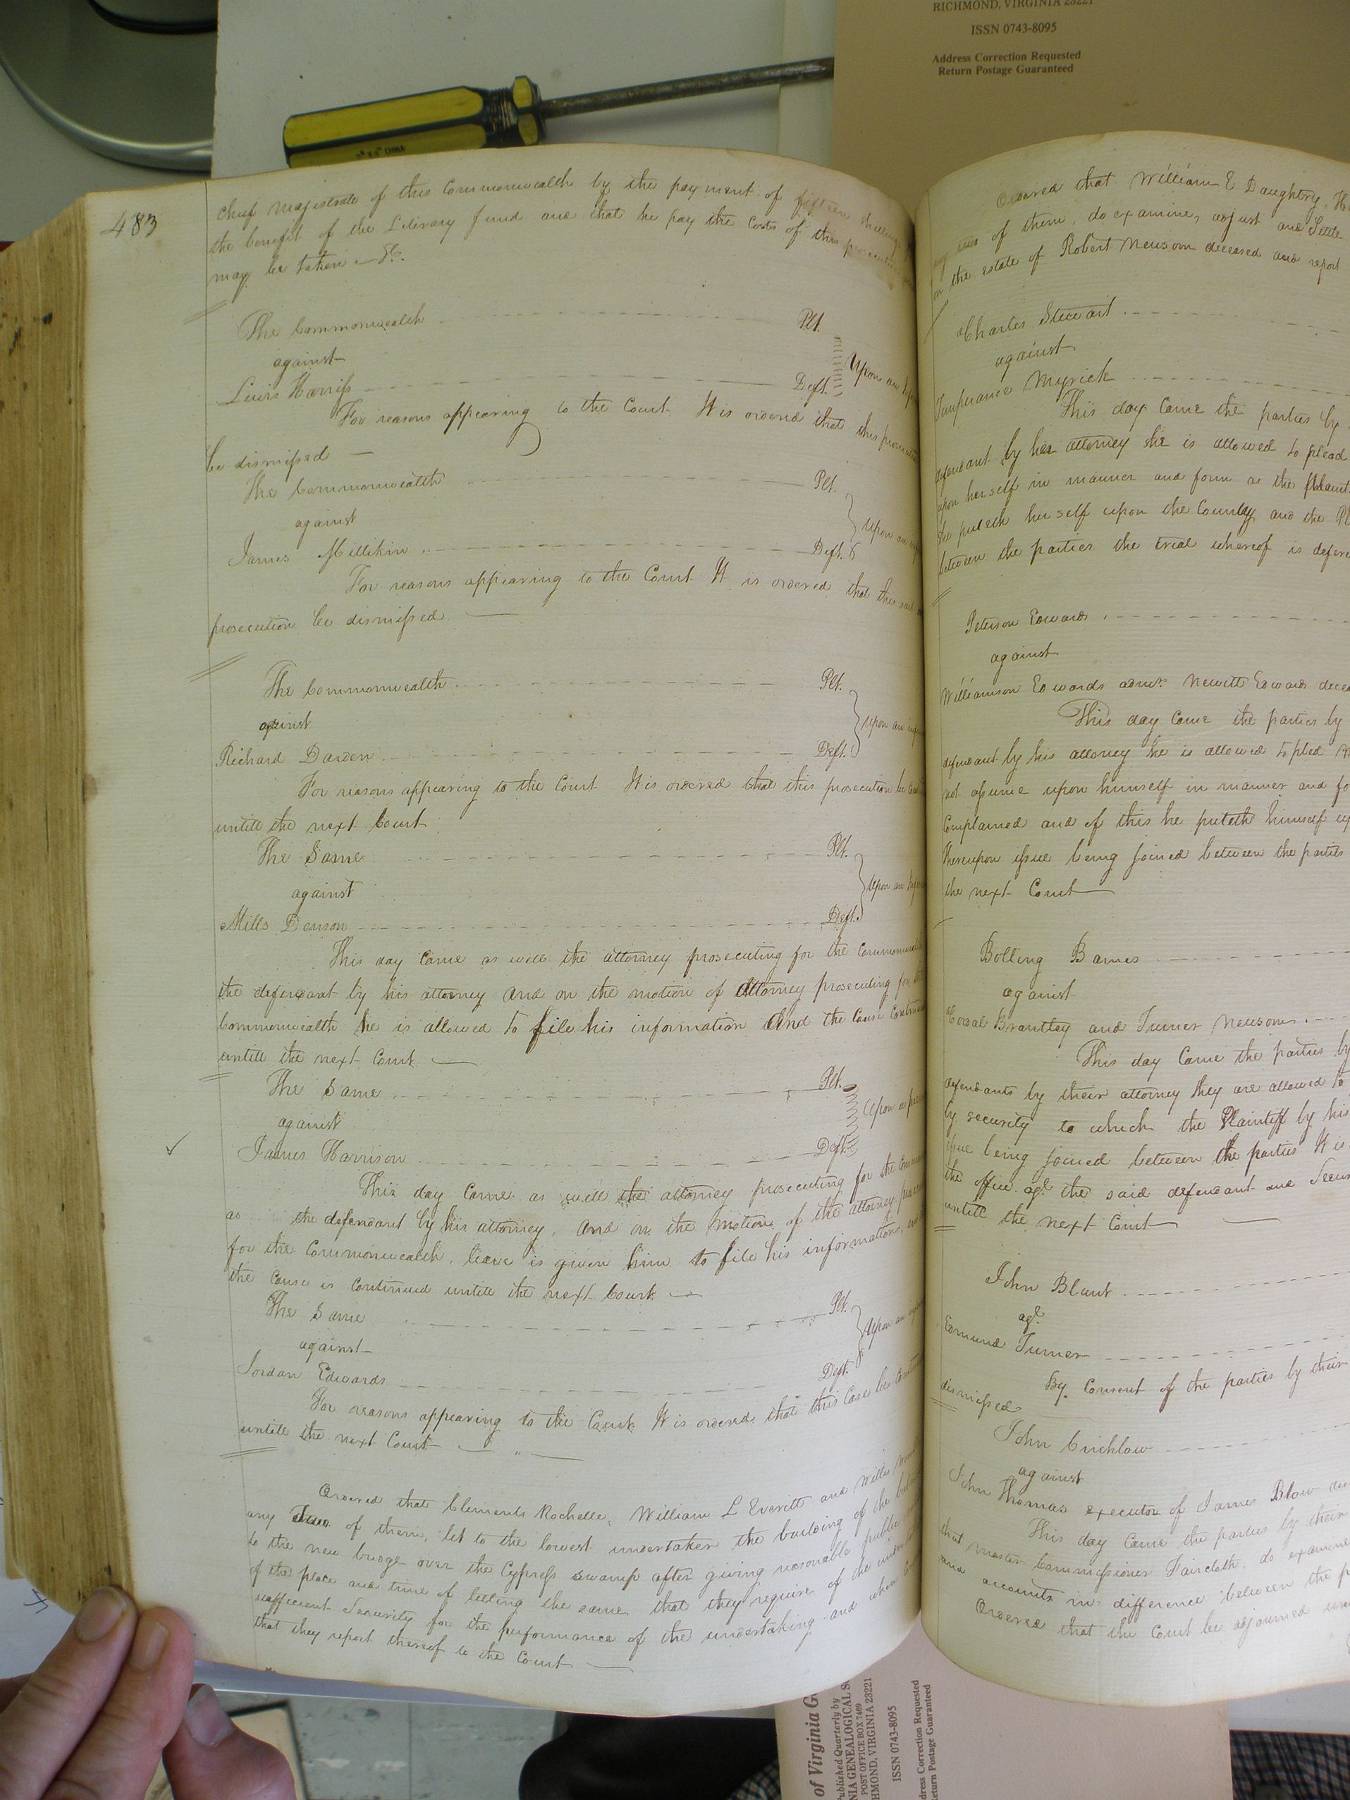 RICHMOND, VIRGINIA 23221
ISSN 0743-8095
Address Correction Requested
Return Postage Guaranteed
483
chief magistrate of this Commonwealth by the payment of fifteen shillings
the benefit of the Literary fund and that he pay the costs of this prosecution
may be taken &c.
The Commonwealth Plt.
against
Lewis Harriss Deft. Upon an
For reasons appearing to the Court It is ordered that this prosecution
be dismissed
The Commonwealth Plt.
against upon an
James Millikin Deft.
For reasons appearing to the Court It is ordered that this said
prosecution be dismissed
The Commonwealth Plt.
against upon an
Richard Darden Deft.
For reasons appearing to the Court It is ordered that this prosecution be
untill the next Court
The Same Plt.
against Upon an
Mills Denson Deft.
This day came as well the attorney prosecuting for the Commonwealth
the defendant by his attorney and on the motion of attorney prosecuting for
Commonwealth he is allowed to file his information And the Cause
untill the next Court
The Same Plt.
against Upon
James Harrison Deft.
This day came as well the attorney prosecuting for the
as the defendant by his attorney, and on the motion of the attorney
for the Commonwealth, leave is given him to file his information,
the cause is continued untill the next Court
The Same Plt.
against Upon an
Jordan Edwards Deft.
For reasons appearing to the Court It is ordered that this Case be
untill the next Court
Ordered that Clements Rochelle, William L Everitt and Willis
any two of them, let to the lowest undertaker the building of the
to the new bridge over the Cypress swamp after giving reasonable public
of the place and time of letting the same that they require of the
sufficient Security for the performance of the undertaking and
that they report thereof to the Court
Ordered that William E Daughtry,
of them, do examine, adjust and Settle
on the estate of Robert Newsom deceased and report
Charles Stewart
against
Temperance Myrick
This day Came the parties by
defendant by her attorney she is allowed to plead
upon herself in manner and form as the Plaint
She puteth herself upon the Country and the
between the parties the trial whereof is
Peterson Edwards
against
Williamson Edwards admr. Newitt Edwards
This day came the parties by
defendant by his attorney he is allowed to pled
not assume upon himself in manner and
Complained and of this he puteth himself
thereupon issue being joined between the parties
the next Court
Bolling Barnes
against
Brantley and Turner Newsom
This day Came the parties by
defendants by their attorney they are allowed to
by security to which the Plaintiff by his
issue being joined between the parties It is
the office agt. the said defendant and
untill the next Court
John Blunt
agt.
Edmund Turner
By Consent of the parties by their
dismissed
John Crichlow
against
John Thomas executor of James Blow
This day came the parties by their
that master Commissioner Faircloth, do examine
and accounts in difference between the
Ordered that the Court be adjourned
of Virginia G
Published Quarterly by
NIA GENEALOGICAL S
POST OFFICE BOX 7469
HMOND, VIRGINIA 23221
ISSN 0743-8095
dress Correction Requested
eturn Postage Guaranteed